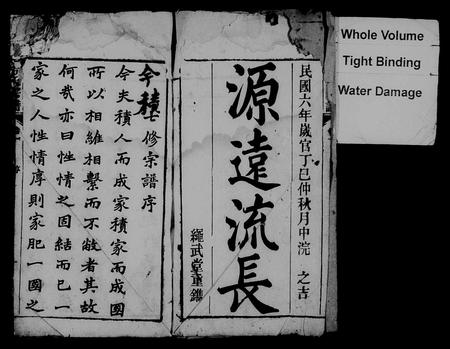 Whole Volume
Tight Binding
Water Damage
民國六年歲官丁巳仲秋月中浣 之吉
源遠流長
繩武堂重鐫
修宗譜序
今夫積人而成家積家而成國
所以相維相繫而不敝者其故
何哉亦曰性情之固結而已一
家之人性情序則家肥一國之